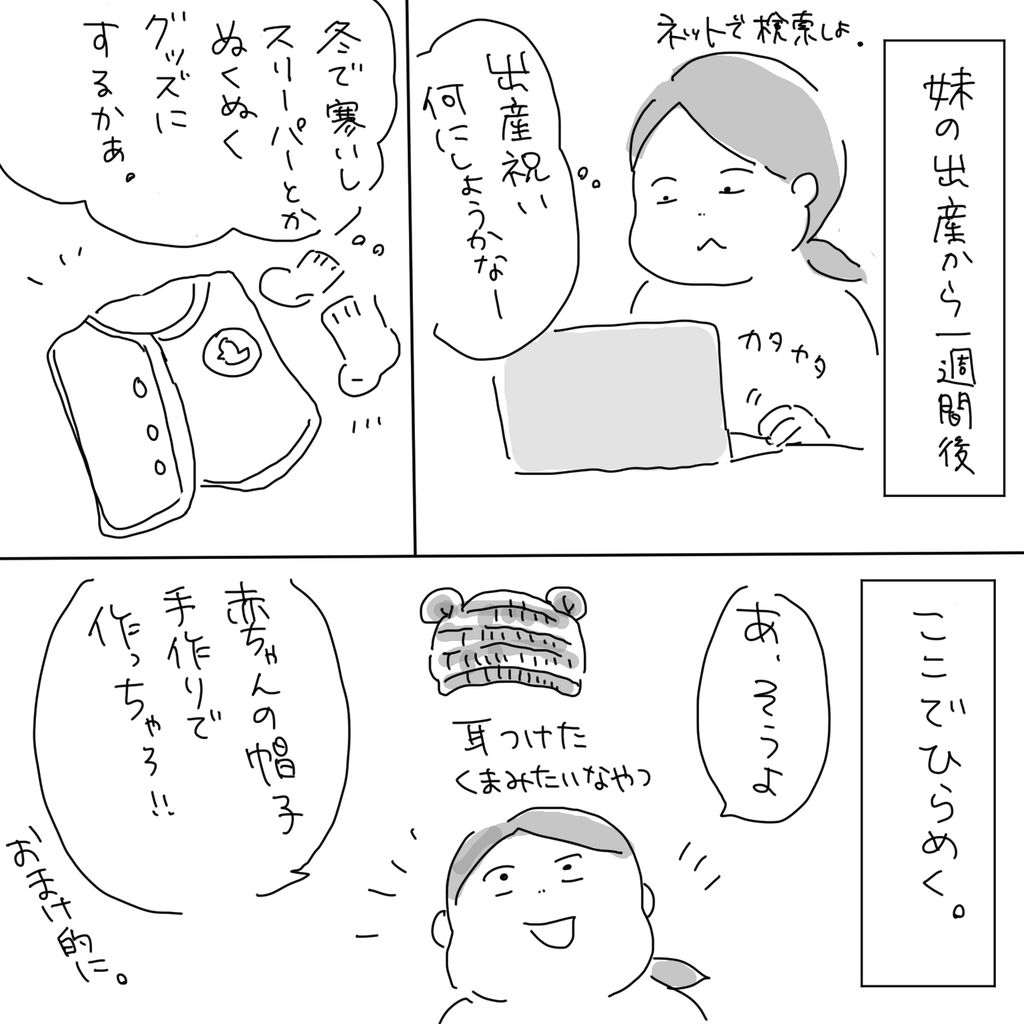 妹の出産から一週間後
ネットで検索しよ。
出産祝い
何にしようかなー
カタカタ
冬で寒いし
スリーパーとか
ぬくぬく
グッズに
するかぁ。
ここでひらめく。
あ、そうよ
耳つけた
くまみたいなやつ
赤ちゃんの帽子
手作りで
作っちゃろ!!
おまけ的に。